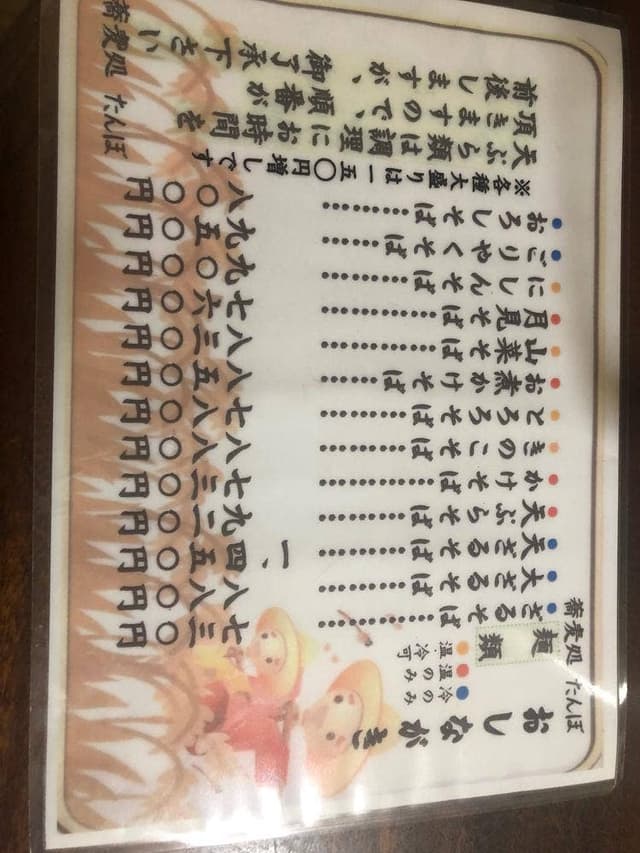 おしながき
蕎麦処 たんぼ
麺類
●冷のみ
●温のみ
●温・冷可
●ざるそば………七三〇円
●大ざるそば………八八〇円
●天ざるそば………一、四五〇円
●天ぷらそば………九二〇円
●かけそば………七三〇円
●きのこそば………八八〇円
●とろろそば………七八〇円
●お煮かけそば………八五〇円
●山菜そば………八三〇円
●月見そば………七六〇円
●にしんそば………九〇〇円
●ごりやくそば………九五〇円
●おろしそば………八〇〇円
※各種大盛りは一五〇円増しです
天ぷら類は調理にお時間を
頂きますので、順番が
前後しますが、御了承下さい
蕎麦処 たんぼ